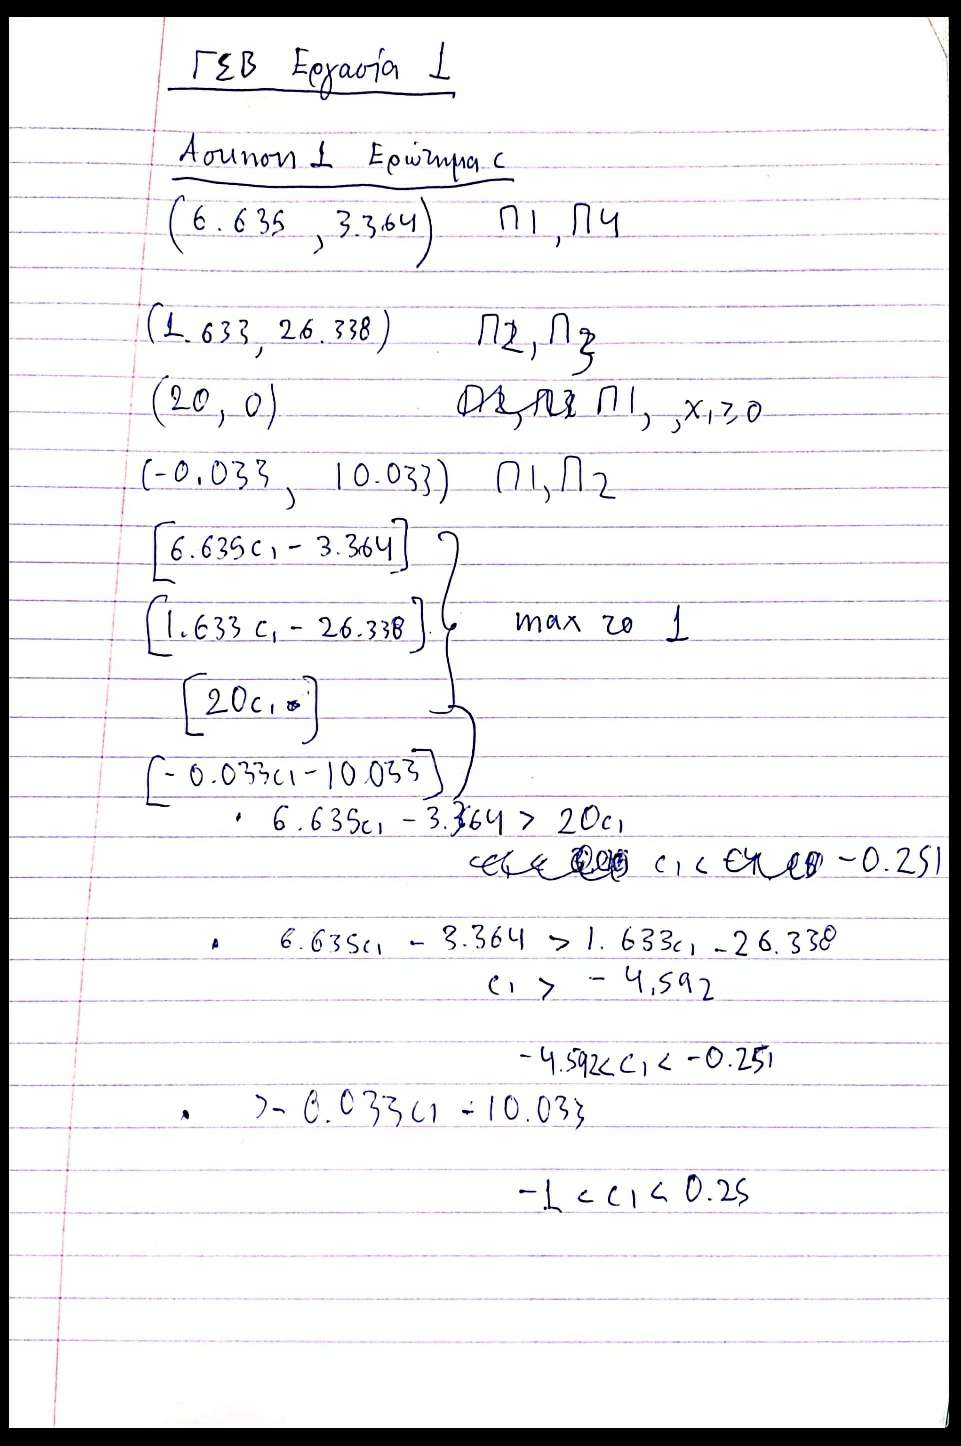 ΓΣΒ Εργασία 1
Άσκηση 1 Ερώτημα c
(6.635, 3.364) Π1, Π4
(1.633, 26.338) Π2, Π3
(20, 0) Π1, , x1≥0
(-0.033, 10.033) Π1, Π2
[6.635c1 - 3.364]
[1.633c1 - 26.338] max το 1
[20c1]
[-0.033c1 - 10.033]
· 6.635c1 - 3.364 > 20c1
c1 < -0.251
· 6.635c1 - 3.364 > 1.633c1 - 26.338
c1 > -4,592
-4.592<c1< -0.251
· >-0.033c1 - 10.033
-1 < c1 < 0.25